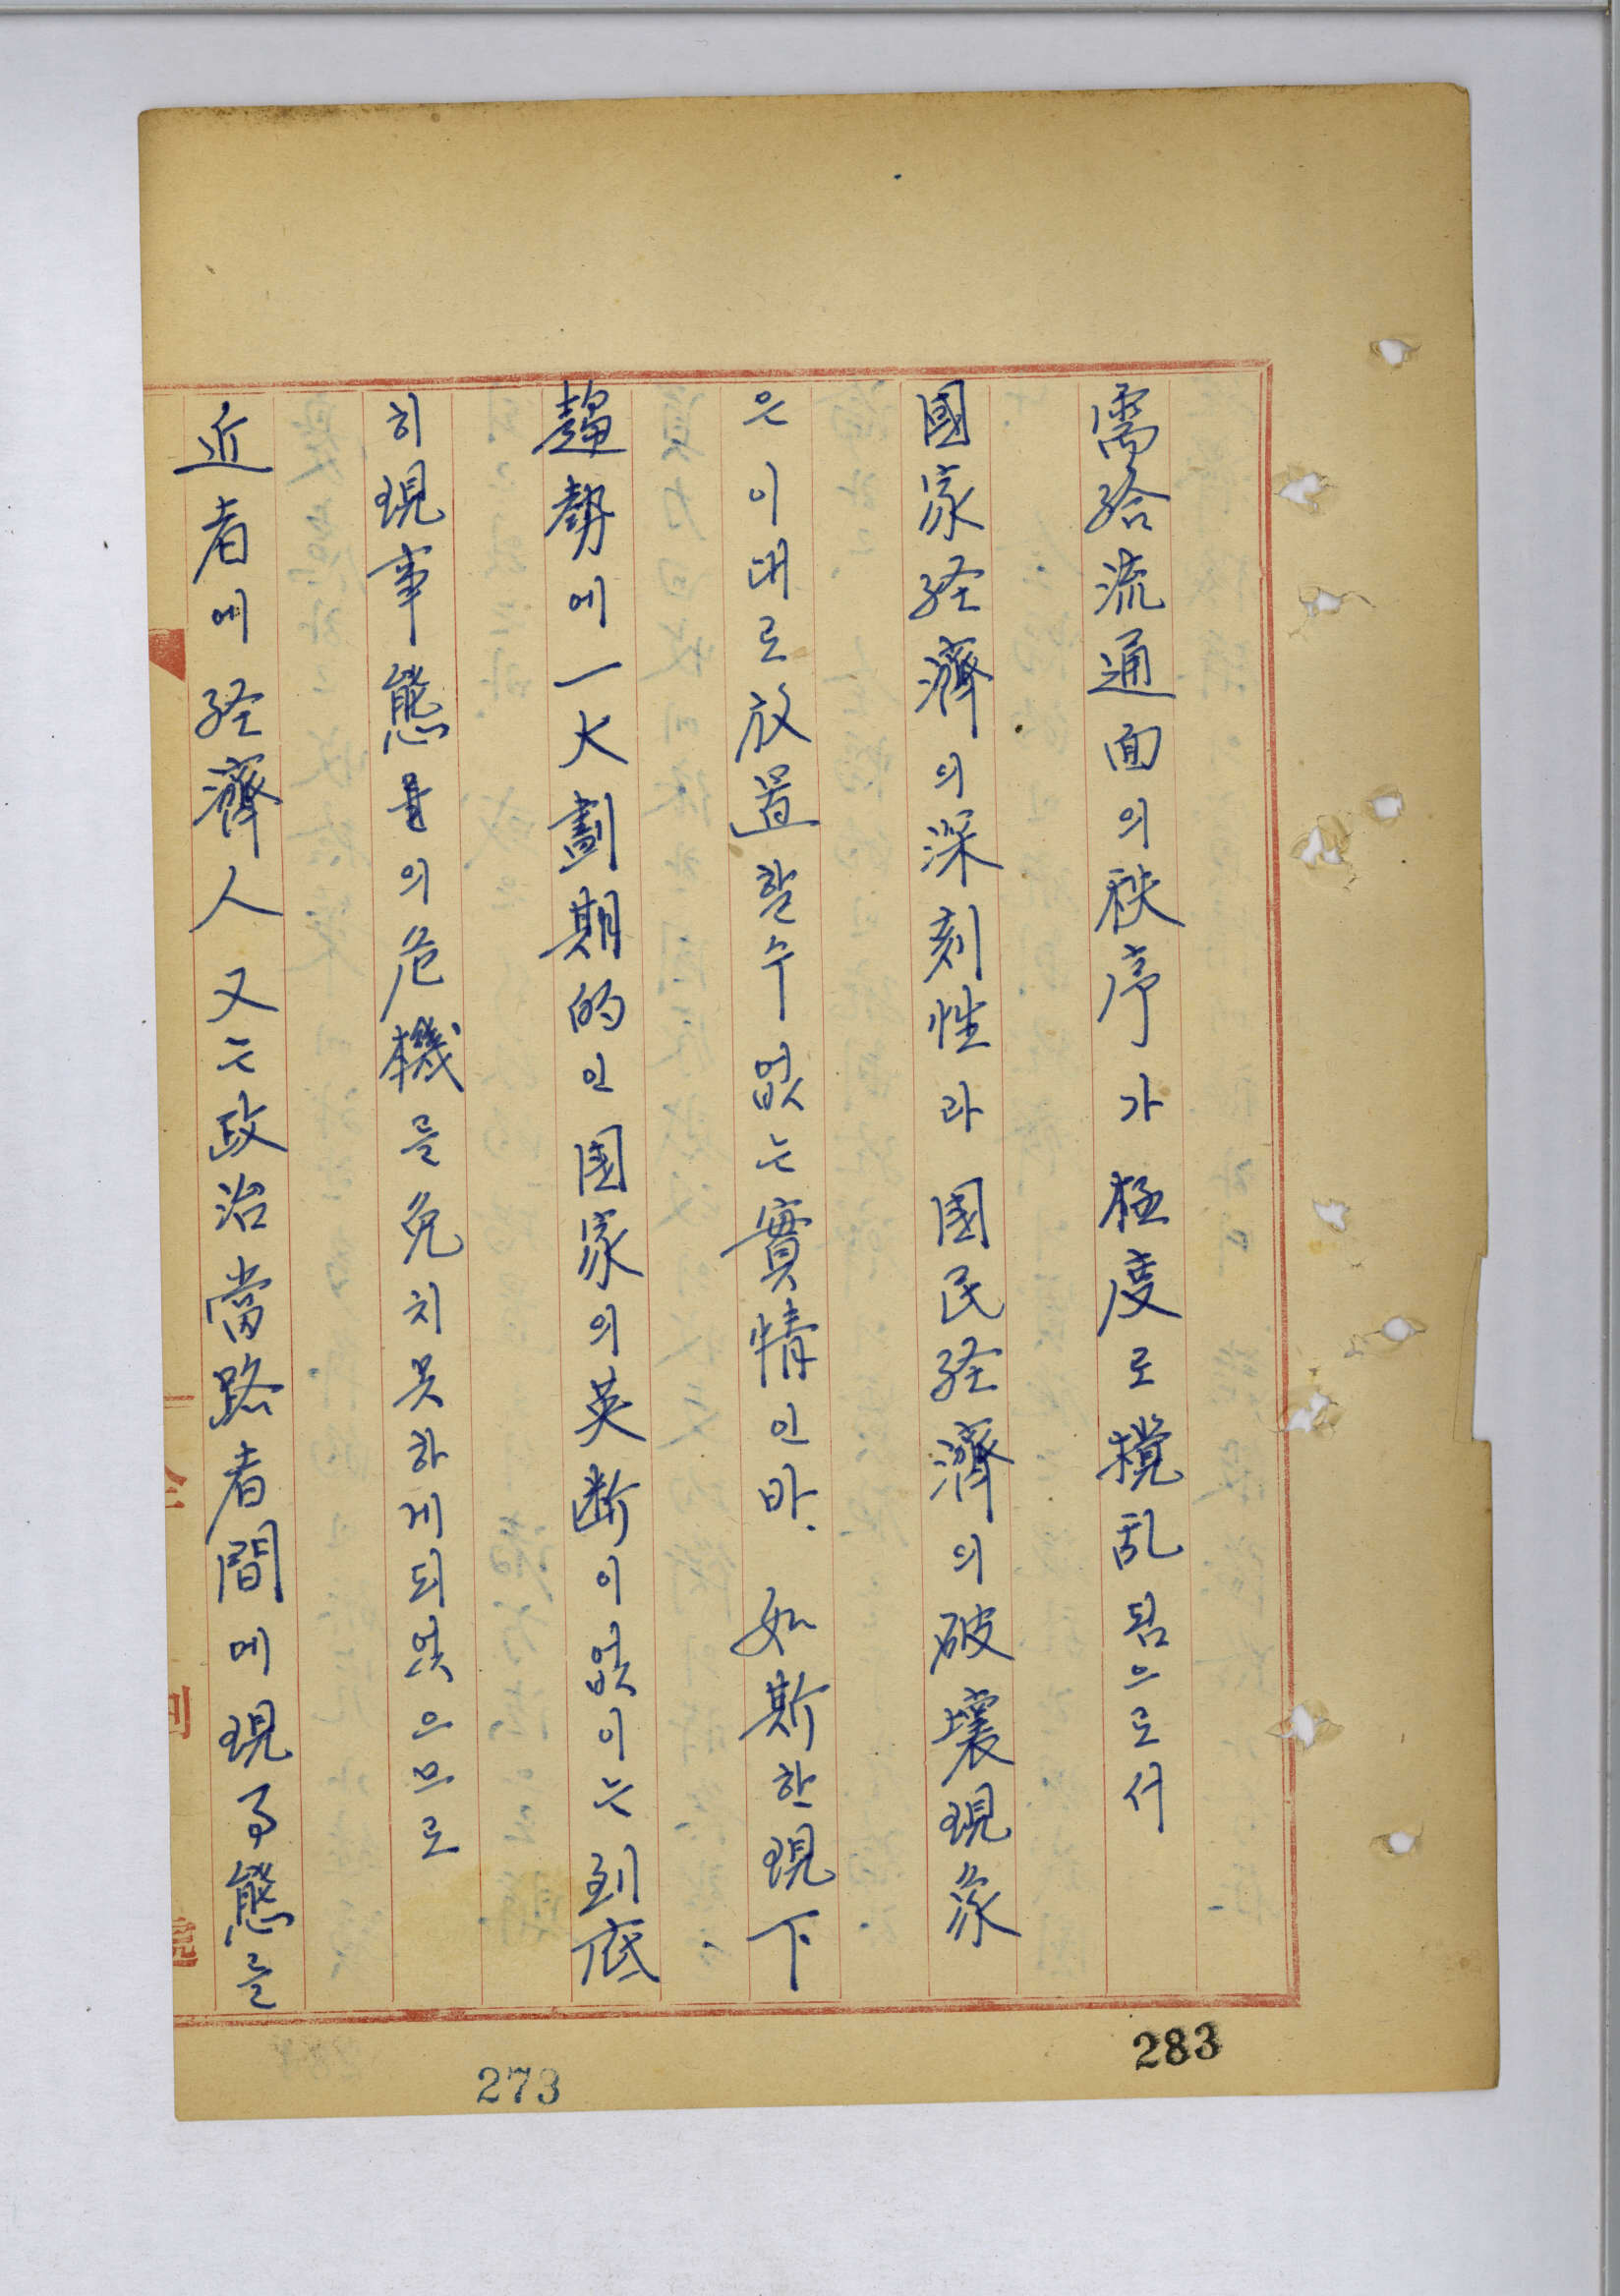 需給流通面의秩序가 極度로攪乱됨으로서
國家経濟의深刻性과 国民経濟의破壞現象
은 이대로放置할수없는實情인바. 如斯한現下
趨勢에一大劃期的인国家의英断이없이는到底
히現事態의危機를免치못하게되엿으므로
近者에経濟人 又는政治當路者間에現事態를
283
273